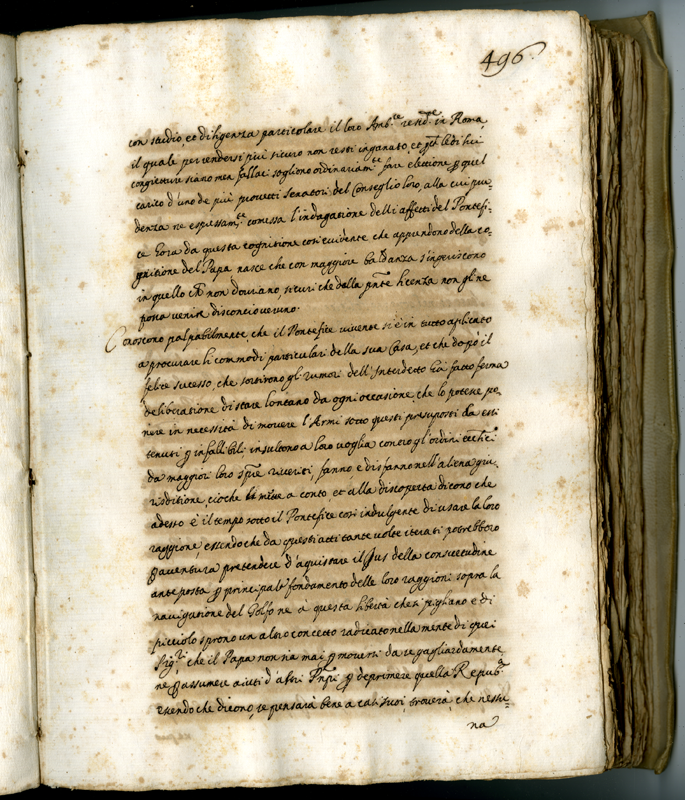 496.
con studio, et diligenza particolare il loro Amb.re resid.te in Roma,
il quale per rendersi più sicuro non resti inganato, et che le di lui
congietture siano men fallaci sogliono ordinariam.te fare elettione p quel
carico d'uno de più provetti senatori del Conseglio loro, alla cui pru=
denza vie espressam.te comessa l'indagatione delli affetti del Pontefi=
ce Hora da questa cognitione così evidente che apprendono della co=
gnitione del Papa nasce che con maggiore baldanza s'ingeriscono
in quello che non dovriano, sicuri che dalla pnte licenza non gli ne
possa venire disconcio veruno.
Conoscono palpabilmente, che il Pontefice vivente si è in tutto aplicato
a procurare li commodi particulari della sua Casa, et che dopò il
felice sucesso, che sortirono gl'rumori dell'Interdetto hà fatto ferma
deliberatione di stare lontano da ogni occasione, che lo potesse po=
nere in necessità di movere l'Armi sotto questi presuposti da essi
tenuti p infallibili insultono a loro voglia contro gl'ordini eccl.ci
da maggiori loro spre riveriti, fanno e disfanno nell'aliena giu=
risditione, cioche li mette a conto, et alla discoperta dicono che
adesso è il tempo sotto il Pontefice così indulgente di usare la loro
raggione, essendo che da questi atti tante volte iterati potrebbero
p aventura pretendere d'aquistare il Jus della consuetudine
ante posta p principal fondamento delle loro raggioni sopra la
navigatione del Golfo ne à questa libertà che si pigliano è di
picciolo sprono un altro concetto radicato nella mente di quei
Sig.ri che il Papa non sia mai p moversi da se gagliardamente
ne p assumere aiuti d'altri Pnpi p deprimere quella Repub.ca
essendo che dicono, se pensarà bene a casi suoi, trovera, che nessu=
na